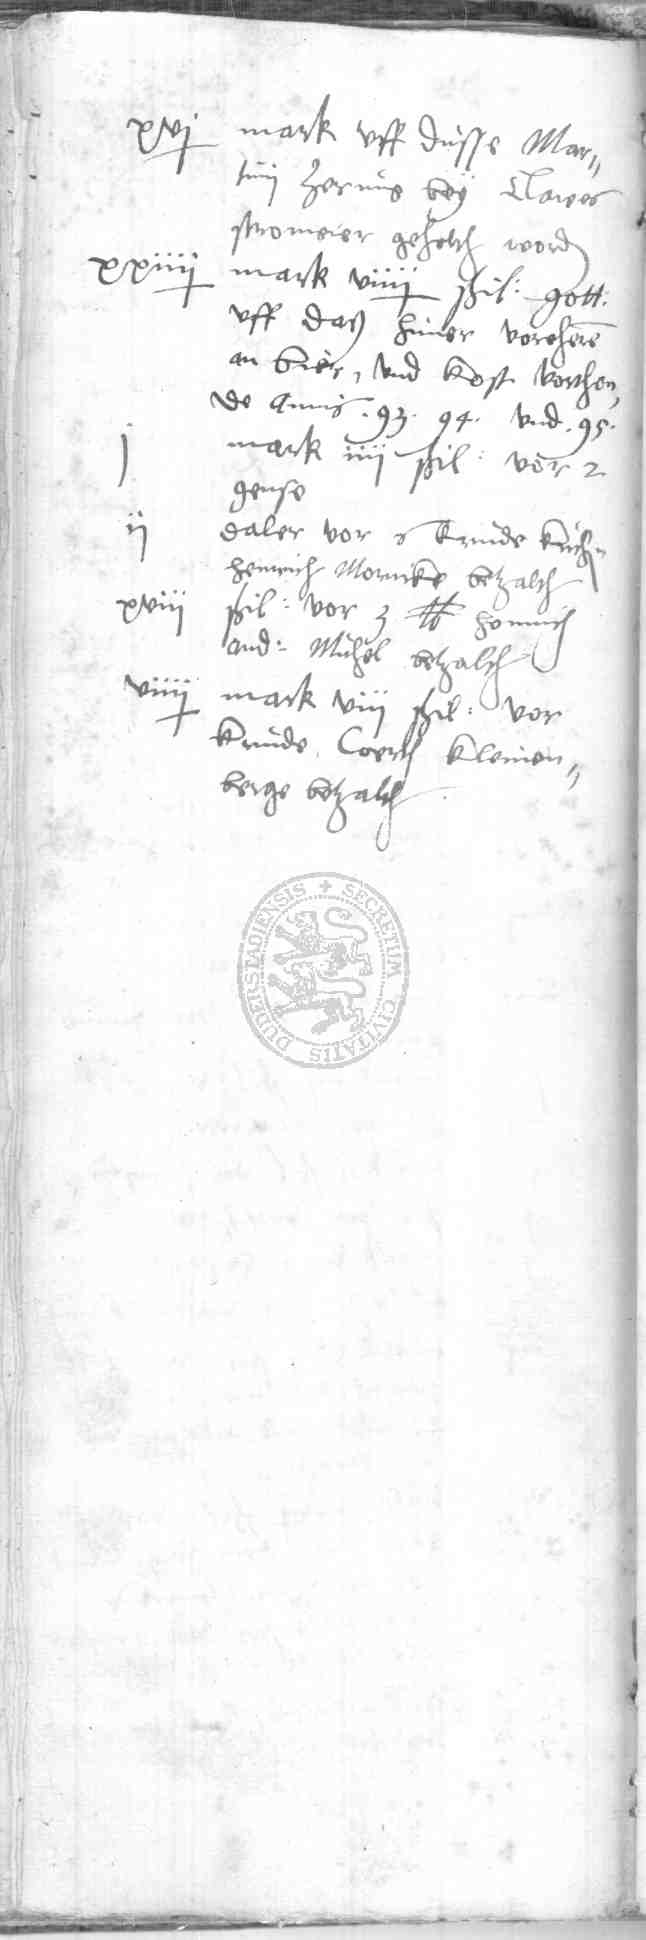 xvj mark vff dusse Mar„
tini Zerung bey Clawes
stromeier geholth word
xxiiii mark viiii ßil: gott.
vff daß hinr vorehere
an bier, vnd kost vorthon„
de Annis . 93 . 94 . vnd . 95 .
j mark iiii ßil: vor 2
gense
ij daler vor krude
Henrich Mornke betzalth
xviii ßil: vor 3 ℔ Henrich
and: Michel betzalth
viiii mark viii ßil: vor
krude Coerth Kleinen„
berge betzalth
SECRETUM CIVITATIS DUDERSTADIENSIS